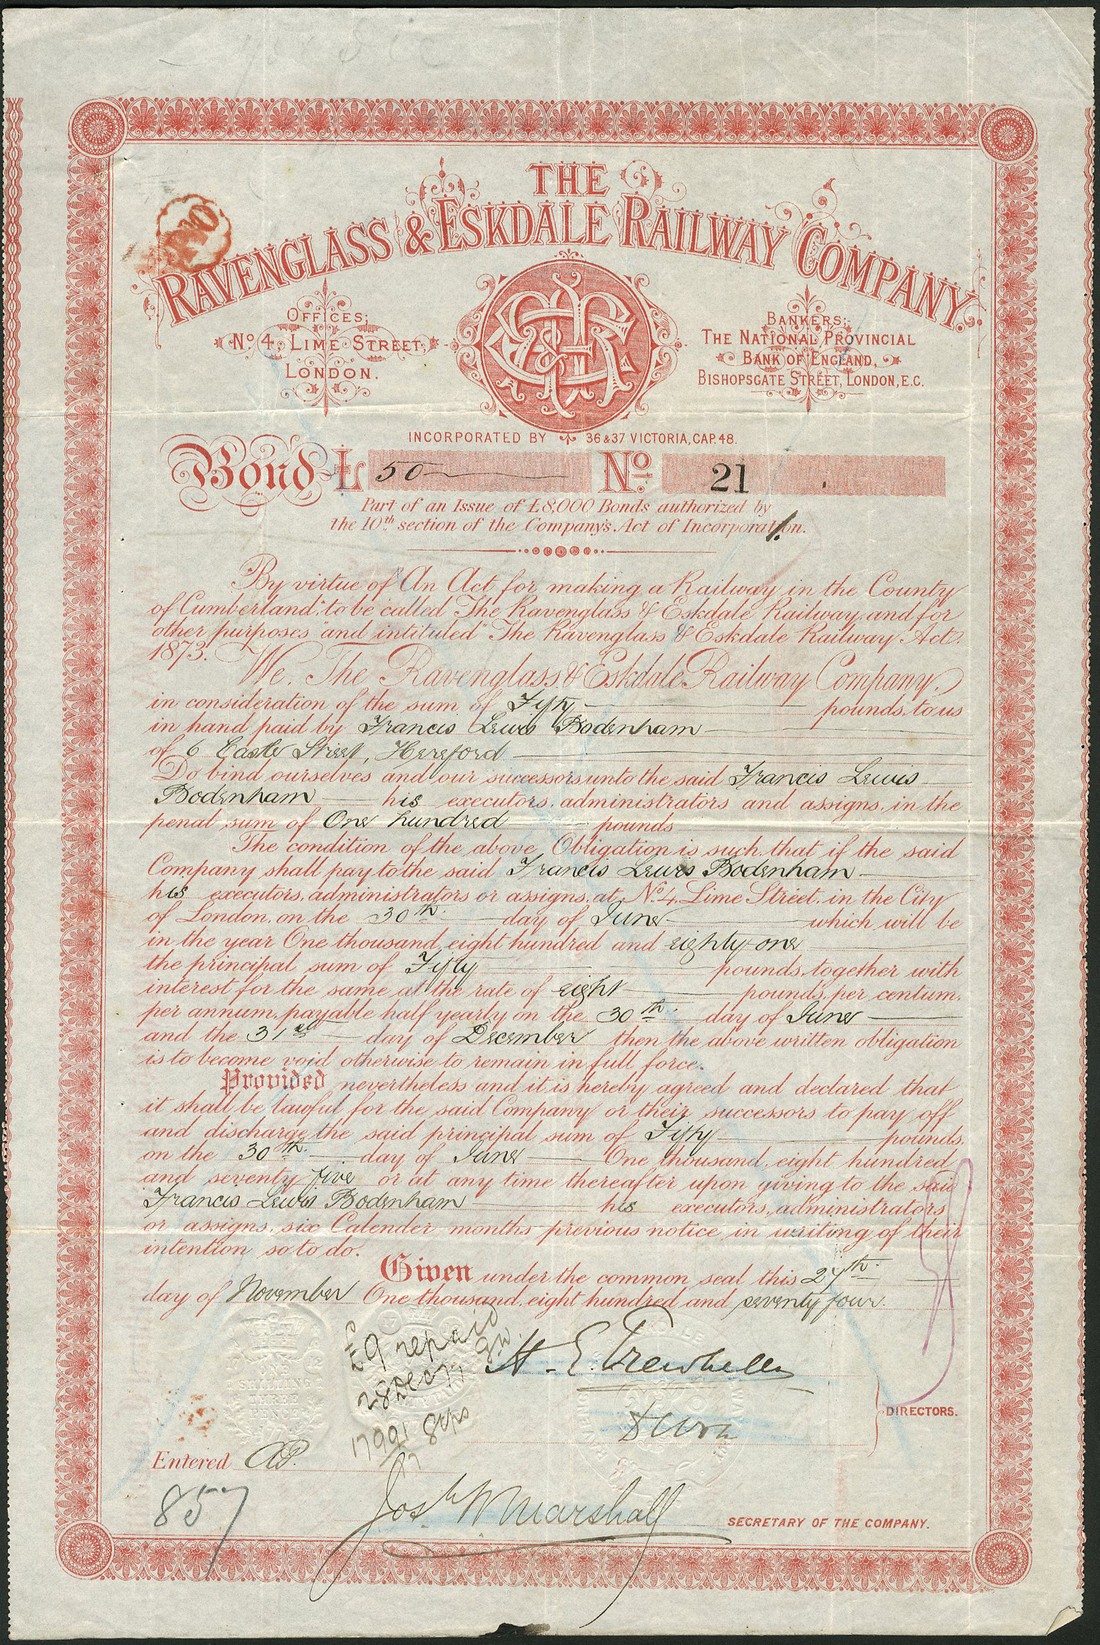 THE
RAVENGLASS & ESKDALE RAILWAY COMPANY.
OFFICES;
No. 4, LIME STREET,
LONDON.
BANKERS;
THE NATIONAL PROVINCIAL
BANK OF ENGLAND,
BISHOPSGATE STREET, LONDON, E.C.
INCORPORATED BY 36 & 37 VICTORIA, CAP. 48.
Bond £ 50 No. 21
Part of an Issue of £8,000 Bonds authorized by
the 10th section of the Company's Act of Incorporation.
By virtue of "An Act for making a Railway in the County
of Cumberland to be called The Ravenglass & Eskdale Railway and for
other purposes" and intituled "The Ravenglass & Eskdale Railway Act
1873." We, The Ravenglass & Eskdale Railway Company,
in consideration of the sum of Fifty pounds, to us
in hand paid by Francis Lewis Bodenham
of 6 Street, Hereford
Do bind ourselves and our successors unto the said Francis Lewis
Bodenham his executors, administrators and assigns, in the
penal sum of One hundred pounds
The condition of the above Obligation is such that if the said
Company shall pay to the said Francis Lewis Bodenham
his executors, administrators or assigns, at No. 4, Lime Street, in the City
of London, on the 30th day of June which will be
in the year One thousand, eight hundred and eighty-one
the principal sum of Fifty pounds, together with
interest for the same at the rate of eight pounds, per centum,
per annum, payable half yearly on the 30th day of June
and the 31st day of December then the above written obligation
is to become void otherwise to remain in full force.
Provided nevertheless and it is hereby agreed and declared that
it shall be lawful for the said Company or their successors to pay off
and discharge the said principal sum of Fifty pounds.
on the 30th day of June One thousand, eight hundred
and seventy five or at any time thereafter upon giving to the said
Francis Lewis Bodenham his executors, administrators
or assigns, six Calender months previous notice in writing of their
intention so to do.
Given under the common seal this 27th
day of November One thousand, eight hundred and seventy four.
£9 repaid
28 Dec
H. E. Trewhella
Devon
DIRECTORS.
Entered
857
Josh W Marshall
SECRETARY OF THE COMPANY.